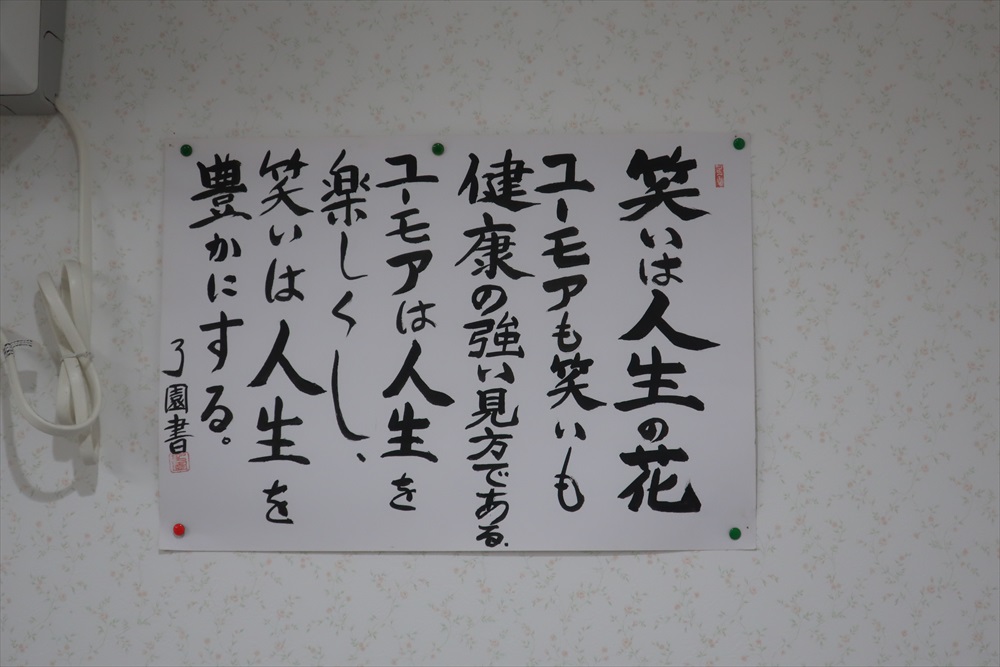 笑いは人生の花
ユーモアも笑いも
健康の強い見方である.
ユーモアは人生を
楽しくし、
笑いは人生を
豊かにする。
了園書